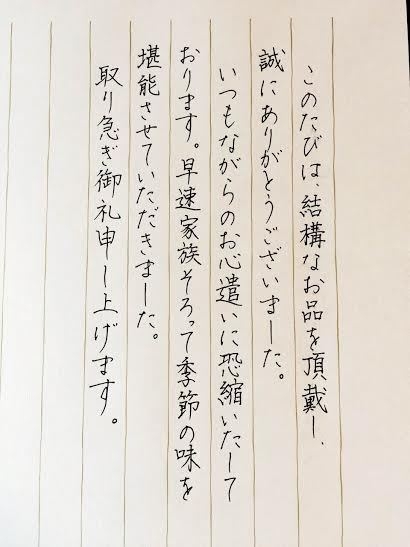 このたびは、結構なお品を頂戴し、
誠にありがとうございました。
いつもながらのお心遣いに恐縮いたして
おります。早速家族そろって季節の味を
堪能させていただきました。
取り急ぎ御礼申し上げます。